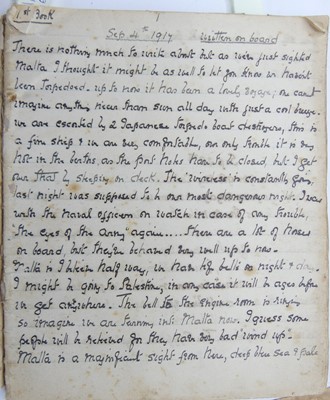 1st Book
Sep 4th 1917 written on board
There is nothing much to write about but as we've just sighted
Malta I thought it might be as well to let you know we haven't
been torpedoed. up to now it has been a lovely voyage; one can't
imagine anything nicer than sun all day with just a cool breeze.
we are escorted by 2 Japanese torpedo boat destroyers, this is
a fine ship & we are very comfortable, our only trouble it is very
hot in the berths as the port holes have to be closed, but I get
over that by sleeping on deck. The "wireless" is constantly going.
last night was supposed to be our most dangerous night. I was
with the naval officers on watch in case of any trouble,
"the eyes of the army" again.... There are a lot of horses
on board, but they've behaved very well up to now.
Malta is I believe half way, we have life belts on night & day.
I might be going to Palestine, in any case it will be ages before
we get anywhere. The bell to the Engine room is ringing
so imagine we are turning into Malta now. I guess some
people will be relieved for they have very bad "wind up".
Malta is a magnificent sight from here, deep blue sea & pale